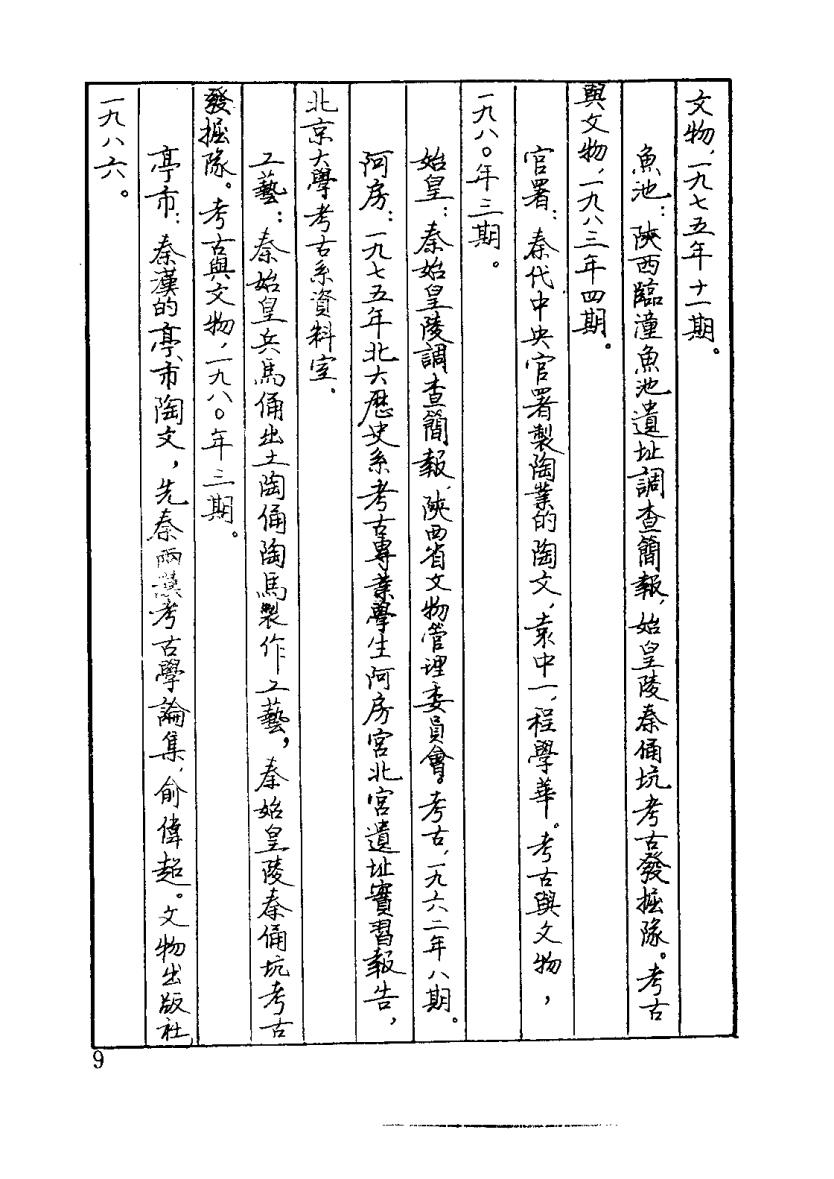 文物，一九七五年十一期。
魚池：陝西臨潼魚池遺址調查簡報，始皇陵秦俑坑考古發掘隊。考古
與文物，一九八三年四期。
官署：秦代中央官署製陶業的陶文，袁中一，程學華。考古與文物，
一九八〇年三期。
始皇：秦始皇陵調查簡報，陝西省文物管理委員會。考古，一九六二年八期。
阿房：一九七五年北大歷史系考古專業學生阿房宮北宮遺址實習報告，
北京大學考古系資料室、
工藝：秦始皇兵馬俑出土陶俑陶馬製作工藝，秦始皇陵秦俑坑考古
發掘隊。考古與文物，一九八〇年三期。
亭市：秦漢的亭、市陶文，先秦兩漢考古學論集，俞偉超。文物出版社，
一九八六。
9